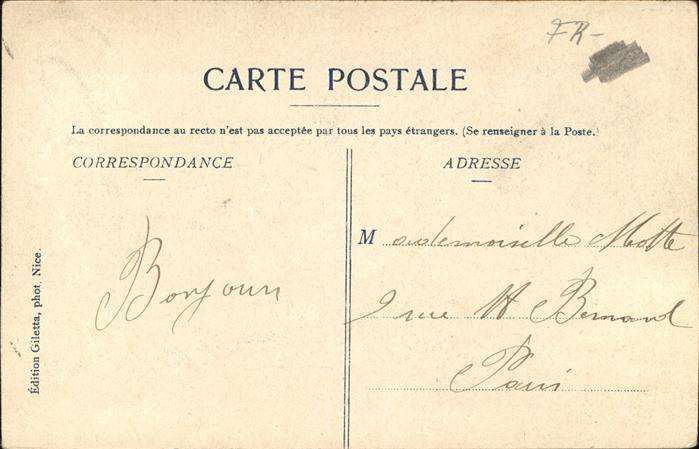 FR-
CARTE POSTALE
La correspondance au recto n'est pas acceptée par tous les pays étrangers. (Se renseigner à la Poste.)
CORRESPONDANCE
ADRESSE
Bonjour
Mademoiselle Motte
rue St Bernard
Paris
Édition Giletta, phot. Nice.